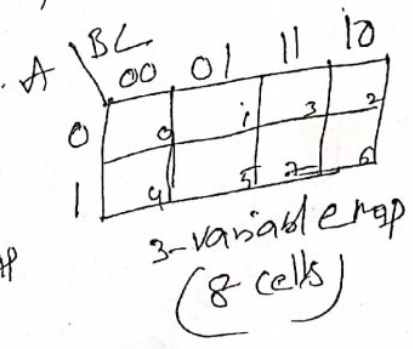 A \ BC
00 01 11 10
0 0 1 3 2
1 4 5 7 6
3-variable map
(8 cells)